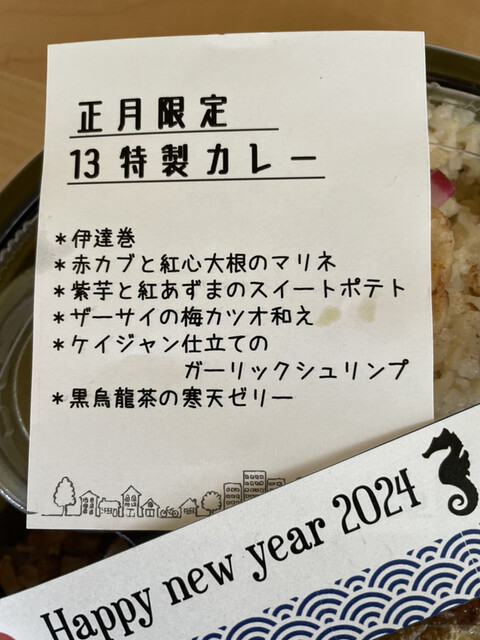 正月限定
13 特製カレー
＊伊達巻
＊赤カブと紅心大根のマリネ
＊紫芋と紅あずまのスイートポテト
＊ザーサイの梅カツオ和え
＊ケイジャン仕立ての
ガーリックシュリンプ
＊黒烏龍茶の寒天ゼリー
Happy new year 2024